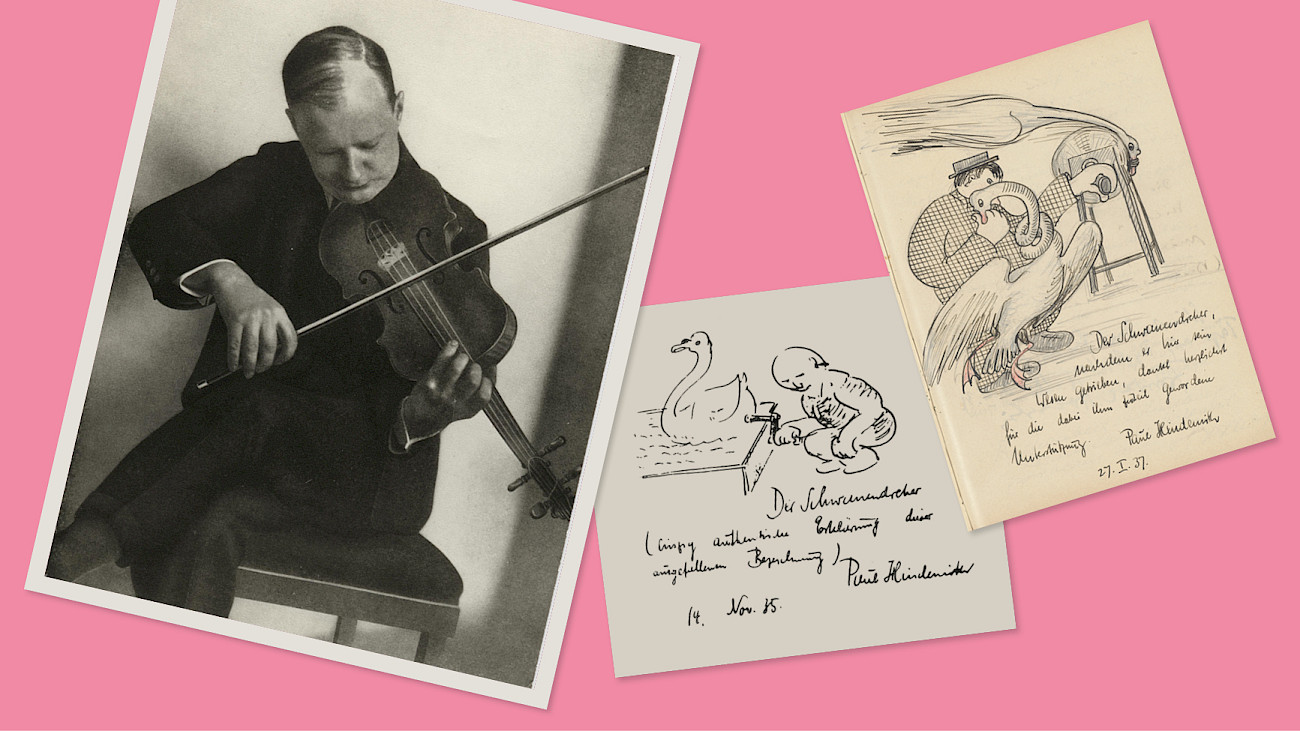 Der Schwanendreher
(einzig authentische Erklärung dieser
ausgefallenen Bezeichnung)
Paul Hindemith
14. Nov. 35.
Der Schwanendreher,
nachdem er hier sein
Wesen getrieben, dankt herzlichst
für die dabei ihm zuteil gewordene
Unterstützung. Paul Hindemith
27. I. 37.